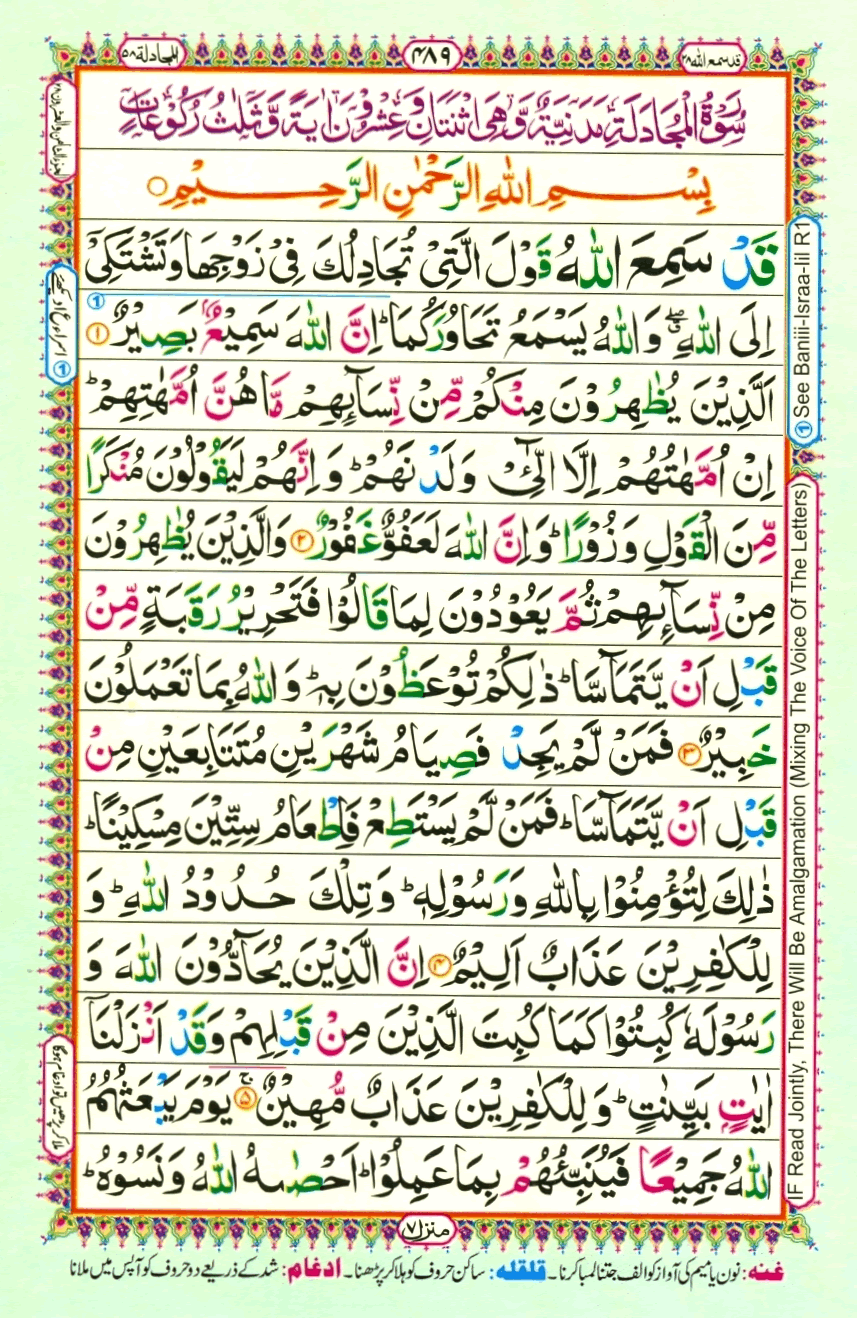 قدسمع الله ۲۸
۴۸۹
المجادلة ۵۸
سُوْرَةُ الْمُجَادَلَةِ مَدَنِيَّةٌ وَّهِىَ اثْنَتَانِ وَعِشْرُوْنَ اٰيَةً وَّثَلٰثُ رُكُوْعَاتٍ
بِسْمِ اللّٰهِ الرَّحْمٰنِ الرَّحِيْمِ
قَدْ سَمِعَ اللّٰهُ قَوْلَ الَّتِىْ تُجَادِلُكَ فِىْ زَوْجِهَا وَتَشْتَكِىْٓ
اِلَى اللّٰهِ ۖ وَاللّٰهُ يَسْمَعُ تَحَاوُرَكُمَا ؕ اِنَّ اللّٰهَ سَمِيْعٌۢ بَصِيْرٌ ۱
اَلَّذِيْنَ يُظٰهِرُوْنَ مِنْكُمْ مِّنْ نِّسَآىِٕهِمْ مَّا هُنَّ اُمَّهٰتِهِمْ ؕ
اِنْ اُمَّهٰتُهُمْ اِلَّا الّٰٓـِٔىْ وَلَدْنَهُمْ ؕ وَاِنَّهُمْ لَيَقُوْلُوْنَ مُنْكَرًا
مِّنَ الْقَوْلِ وَزُوْرًا ؕ وَاِنَّ اللّٰهَ لَعَفُوٌّ غَفُوْرٌ ۲ وَالَّذِيْنَ يُظٰهِرُوْنَ
مِنْ نِّسَآىِٕهِمْ ثُمَّ يَعُوْدُوْنَ لِمَا قَالُوْا فَتَحْرِيْرُ رَقَبَةٍ مِّنْ
قَبْلِ اَنْ يَّتَمَآسَّا ؕ ذٰلِكُمْ تُوْعَظُوْنَ بِهٖ ؕ وَاللّٰهُ بِمَا تَعْمَلُوْنَ
خَبِيْرٌ ۳ فَمَنْ لَّمْ يَجِدْ فَصِيَامُ شَهْرَيْنِ مُتَتَابِعَيْنِ مِنْ
قَبْلِ اَنْ يَّتَمَآسَّا ؕ فَمَنْ لَّمْ يَسْتَطِعْ فَاِطْعَامُ سِتِّيْنَ مِسْكِيْنًا ؕ
ذٰلِكَ لِتُؤْمِنُوْا بِاللّٰهِ وَرَسُوْلِهٖ ؕ وَتِلْكَ حُدُوْدُ اللّٰهِ ؕ وَ
لِلْكٰفِرِيْنَ عَذَابٌ اَلِيْمٌ ۴ اِنَّ الَّذِيْنَ يُحَآدُّوْنَ اللّٰهَ وَ
رَسُوْلَهٗ كُبِتُوْا كَمَا كُبِتَ الَّذِيْنَ مِنْ قَبْلِهِمْ وَقَدْ اَنْزَلْنَآ
اٰيٰتٍۢ بَيِّنٰتٍ ؕ وَلِلْكٰفِرِيْنَ عَذَابٌ مُّهِيْنٌ ۚ ۵ يَوْمَ يَبْعَثُهُمُ
اللّٰهُ جَمِيْعًا فَيُنَبِّئُهُمْ بِمَا عَمِلُوْا ؕ اَحْصٰىهُ اللّٰهُ وَنَسُوْهُ ؕ
منزل ۷
غنه: نون یا میم کی آواز کو الف جتنا لمبا کرنا۔ قلقله: ساکن حروف کو ہلا کر پڑھنا۔ ادغام: شد کے ذریعے دو حروف کو آپس میں ملانا
① See Baniii-Israa-Iil R1
IF Read Jointly, There Will Be Amalgamation (Mixing The Voice Of The Letters)